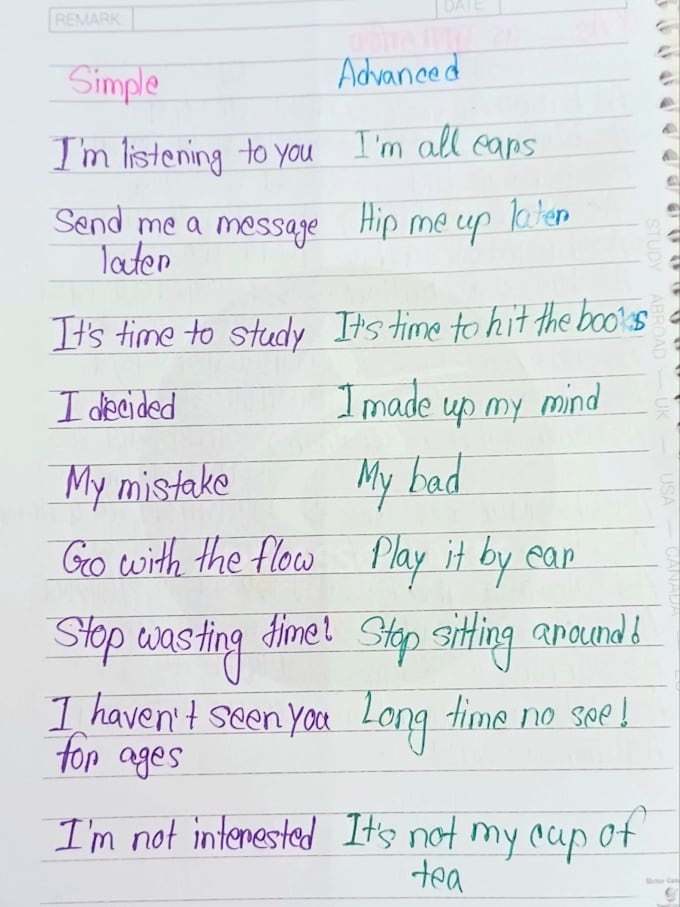 REMARK:
DATE:
Simple Advanced
I'm listening to you I'm all ears
Send me a message Hip me up later
later
It's time to study It's time to hit the books
I decided I made up my mind
My mistake My bad
Go with the flow Play it by ear
Stop wasting time! Stop sitting around!
I haven't seen you Long time no see!
for ages
I'm not interested It's not my cup of
tea
STUDY ABROAD — UK — USA — CANADA —